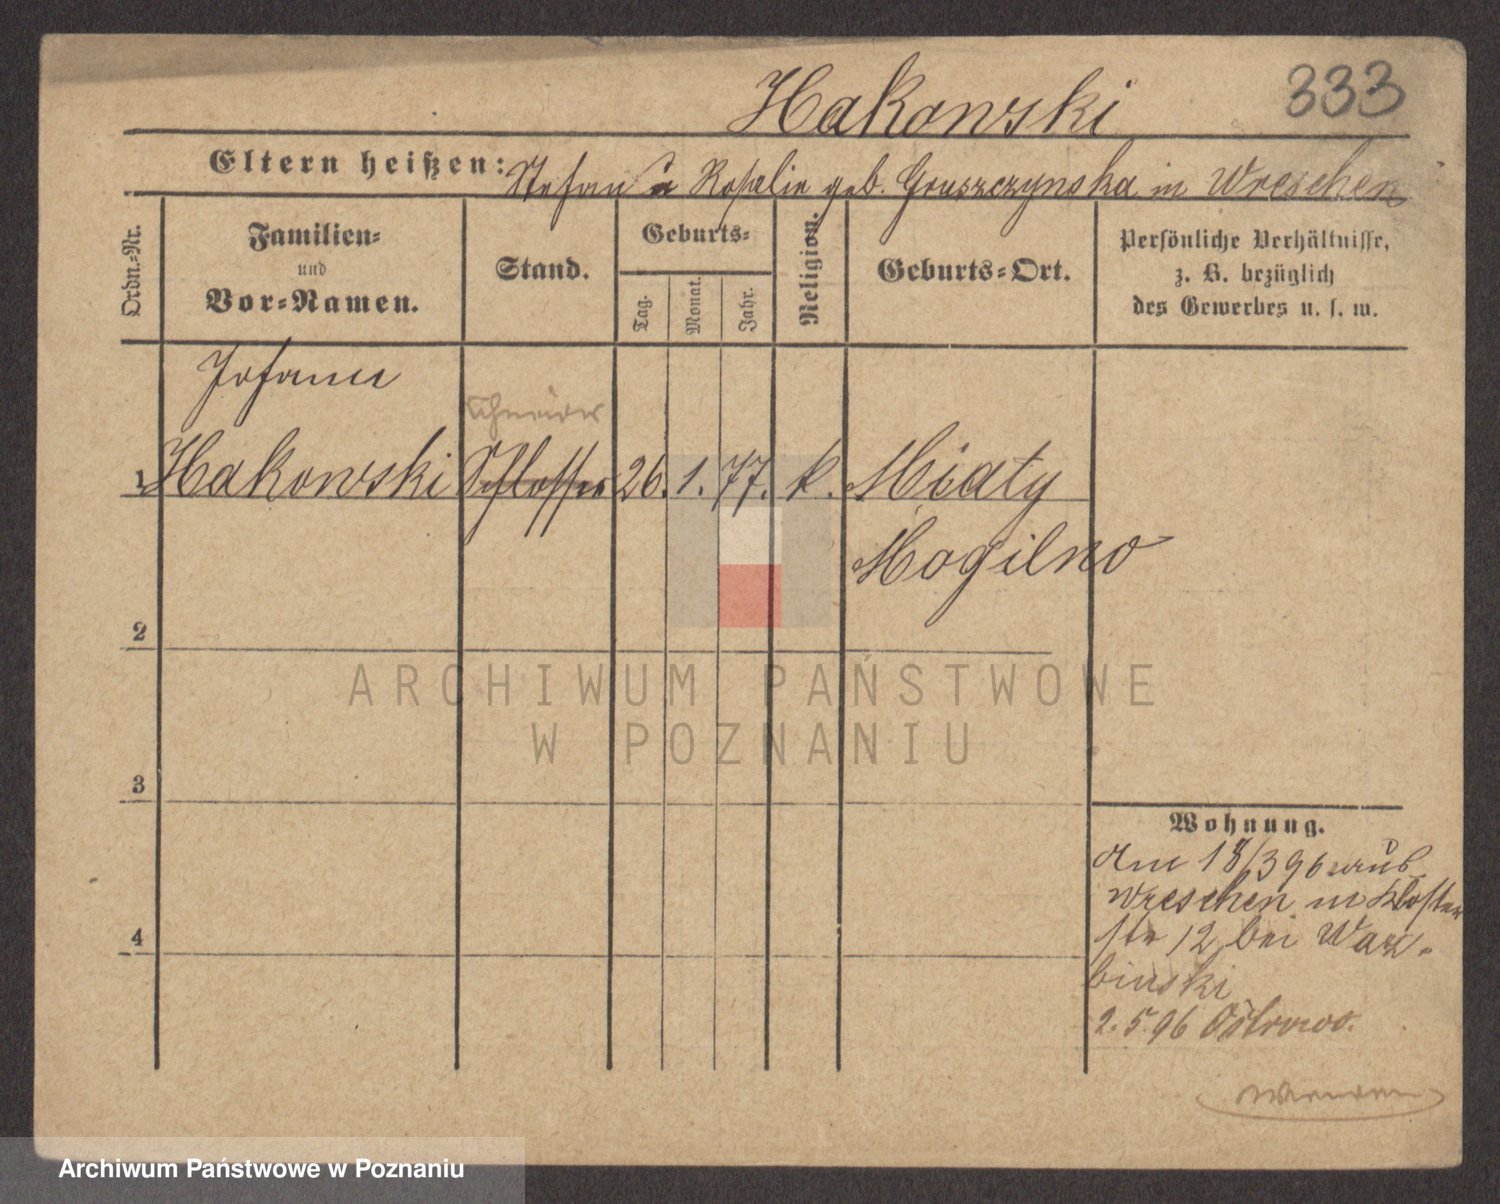 Hakowski
333
Eltern heißen: Stefan u Rosalie geb. Gruszczynska in Wreschen
Ordn.-Nr.
Familien-
und
Vor-Namen.
Stand.
Geburts-
Tag.
Monat.
Jahr.
Religion.
Geburts-Ort.
Persönliche Verhältnisse,
z. B. bezüglich
des Gewerbes u. s. w.
Johann
Schneider
1 Hakowski Schlosser 26. 1. 77. k. Miaty
Mogilno
2
3
4
ARCHIWUM PAŃSTWOWE
W POZNANIU
Wohnung.
Am 18/3 96 aus
Wreschen in Kloster
str 12 bei Wax-
binski
2.5.96 Ostrowo.
Archiwum Państwowe w Poznaniu